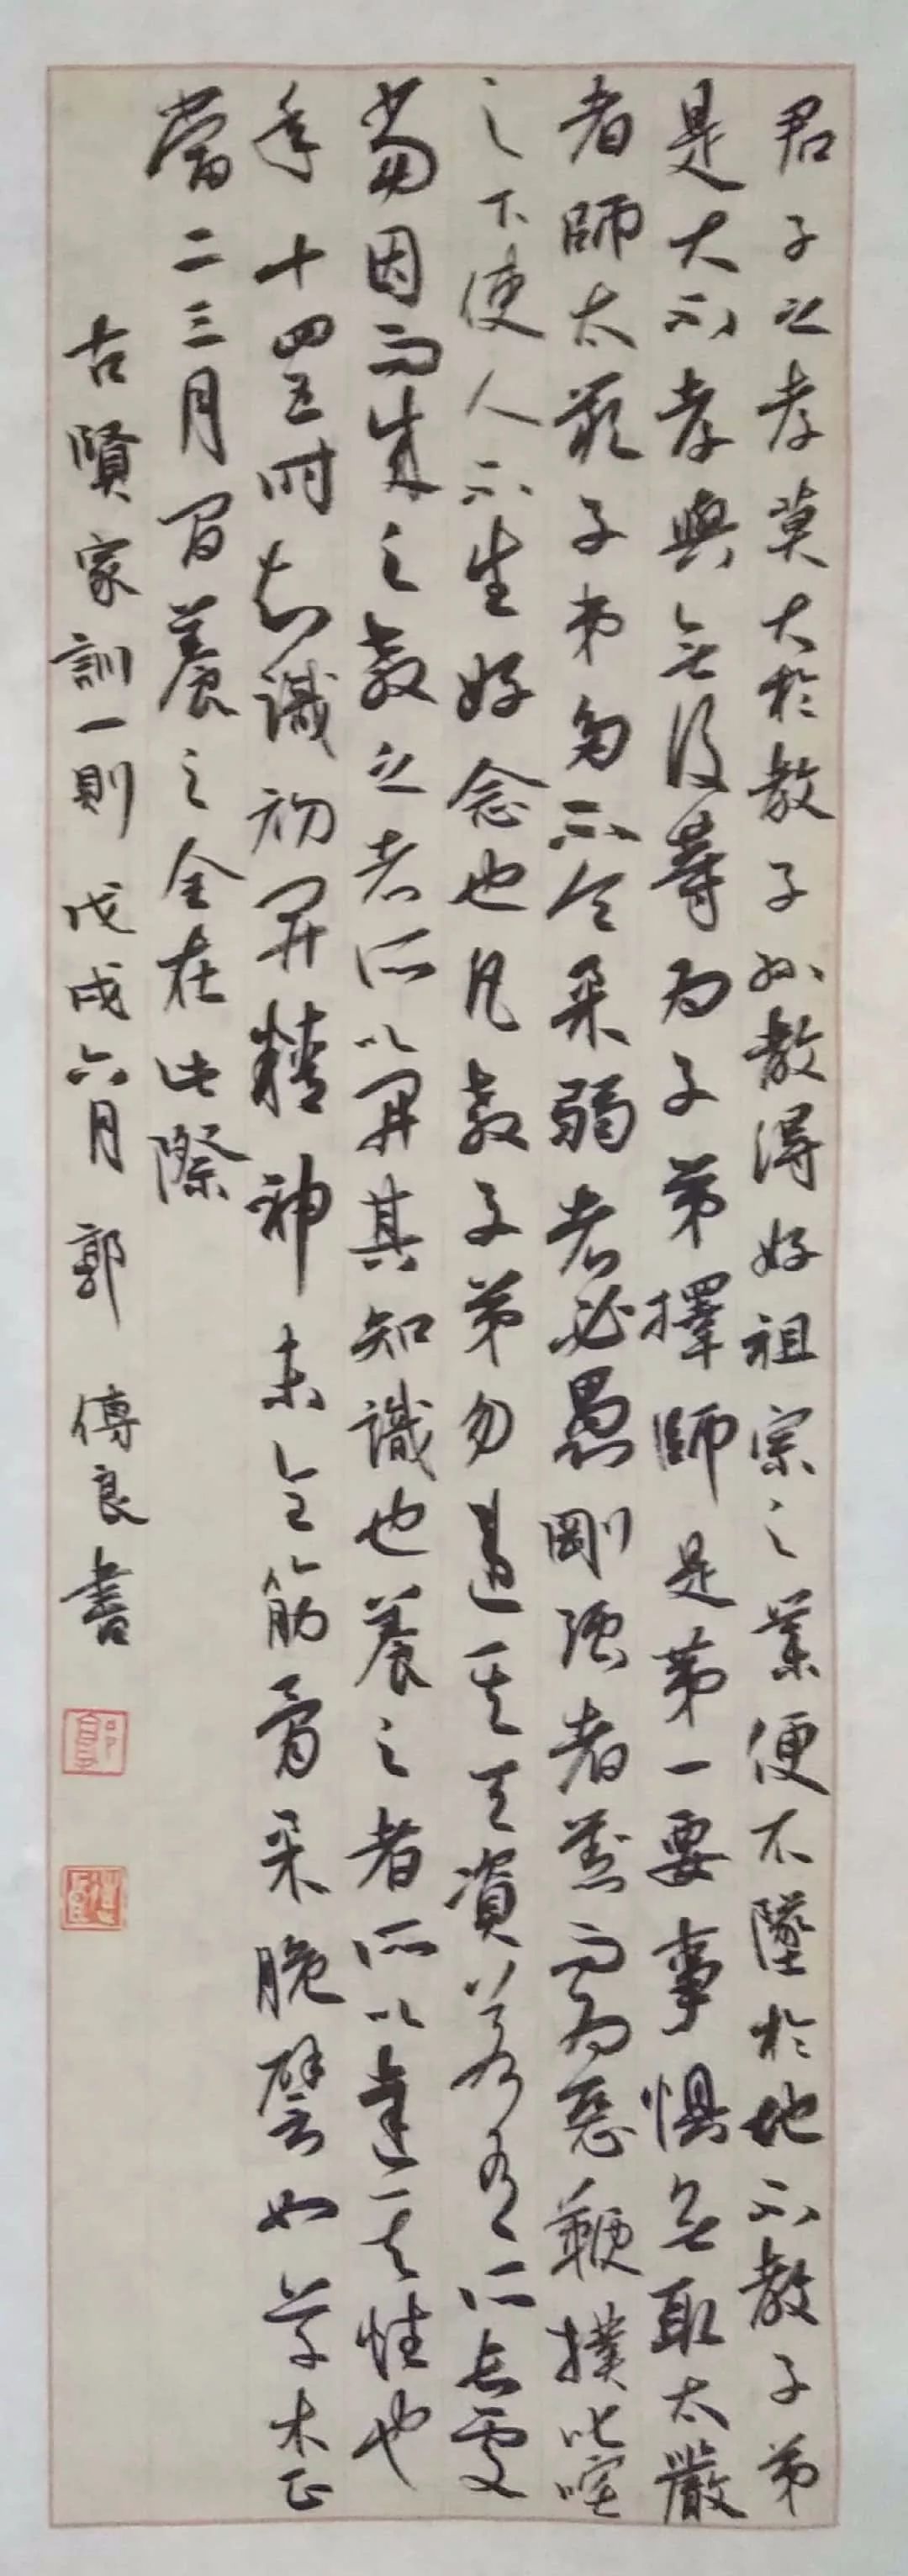 君子之孝莫大於教子孫教得好祖宗之業便不墜於地不教子弟
是大不孝與無後等為子弟擇師是第一要事慎無取太嚴
者師太嚴子弟多不令柔弱者必愚剛强者懟而為惡鞭撲叱咤
之下使人不生好念也凡教子弟勿違其天資若有所長處
當因而成之教之者所以開其知識也養之者所以達其性也
年十四五時知識初開精神未全筋骨柔脆譬如草木正
當二三月間養之全在此際
古賢家訓一則 戊戌六月 郭 傳良書
郭